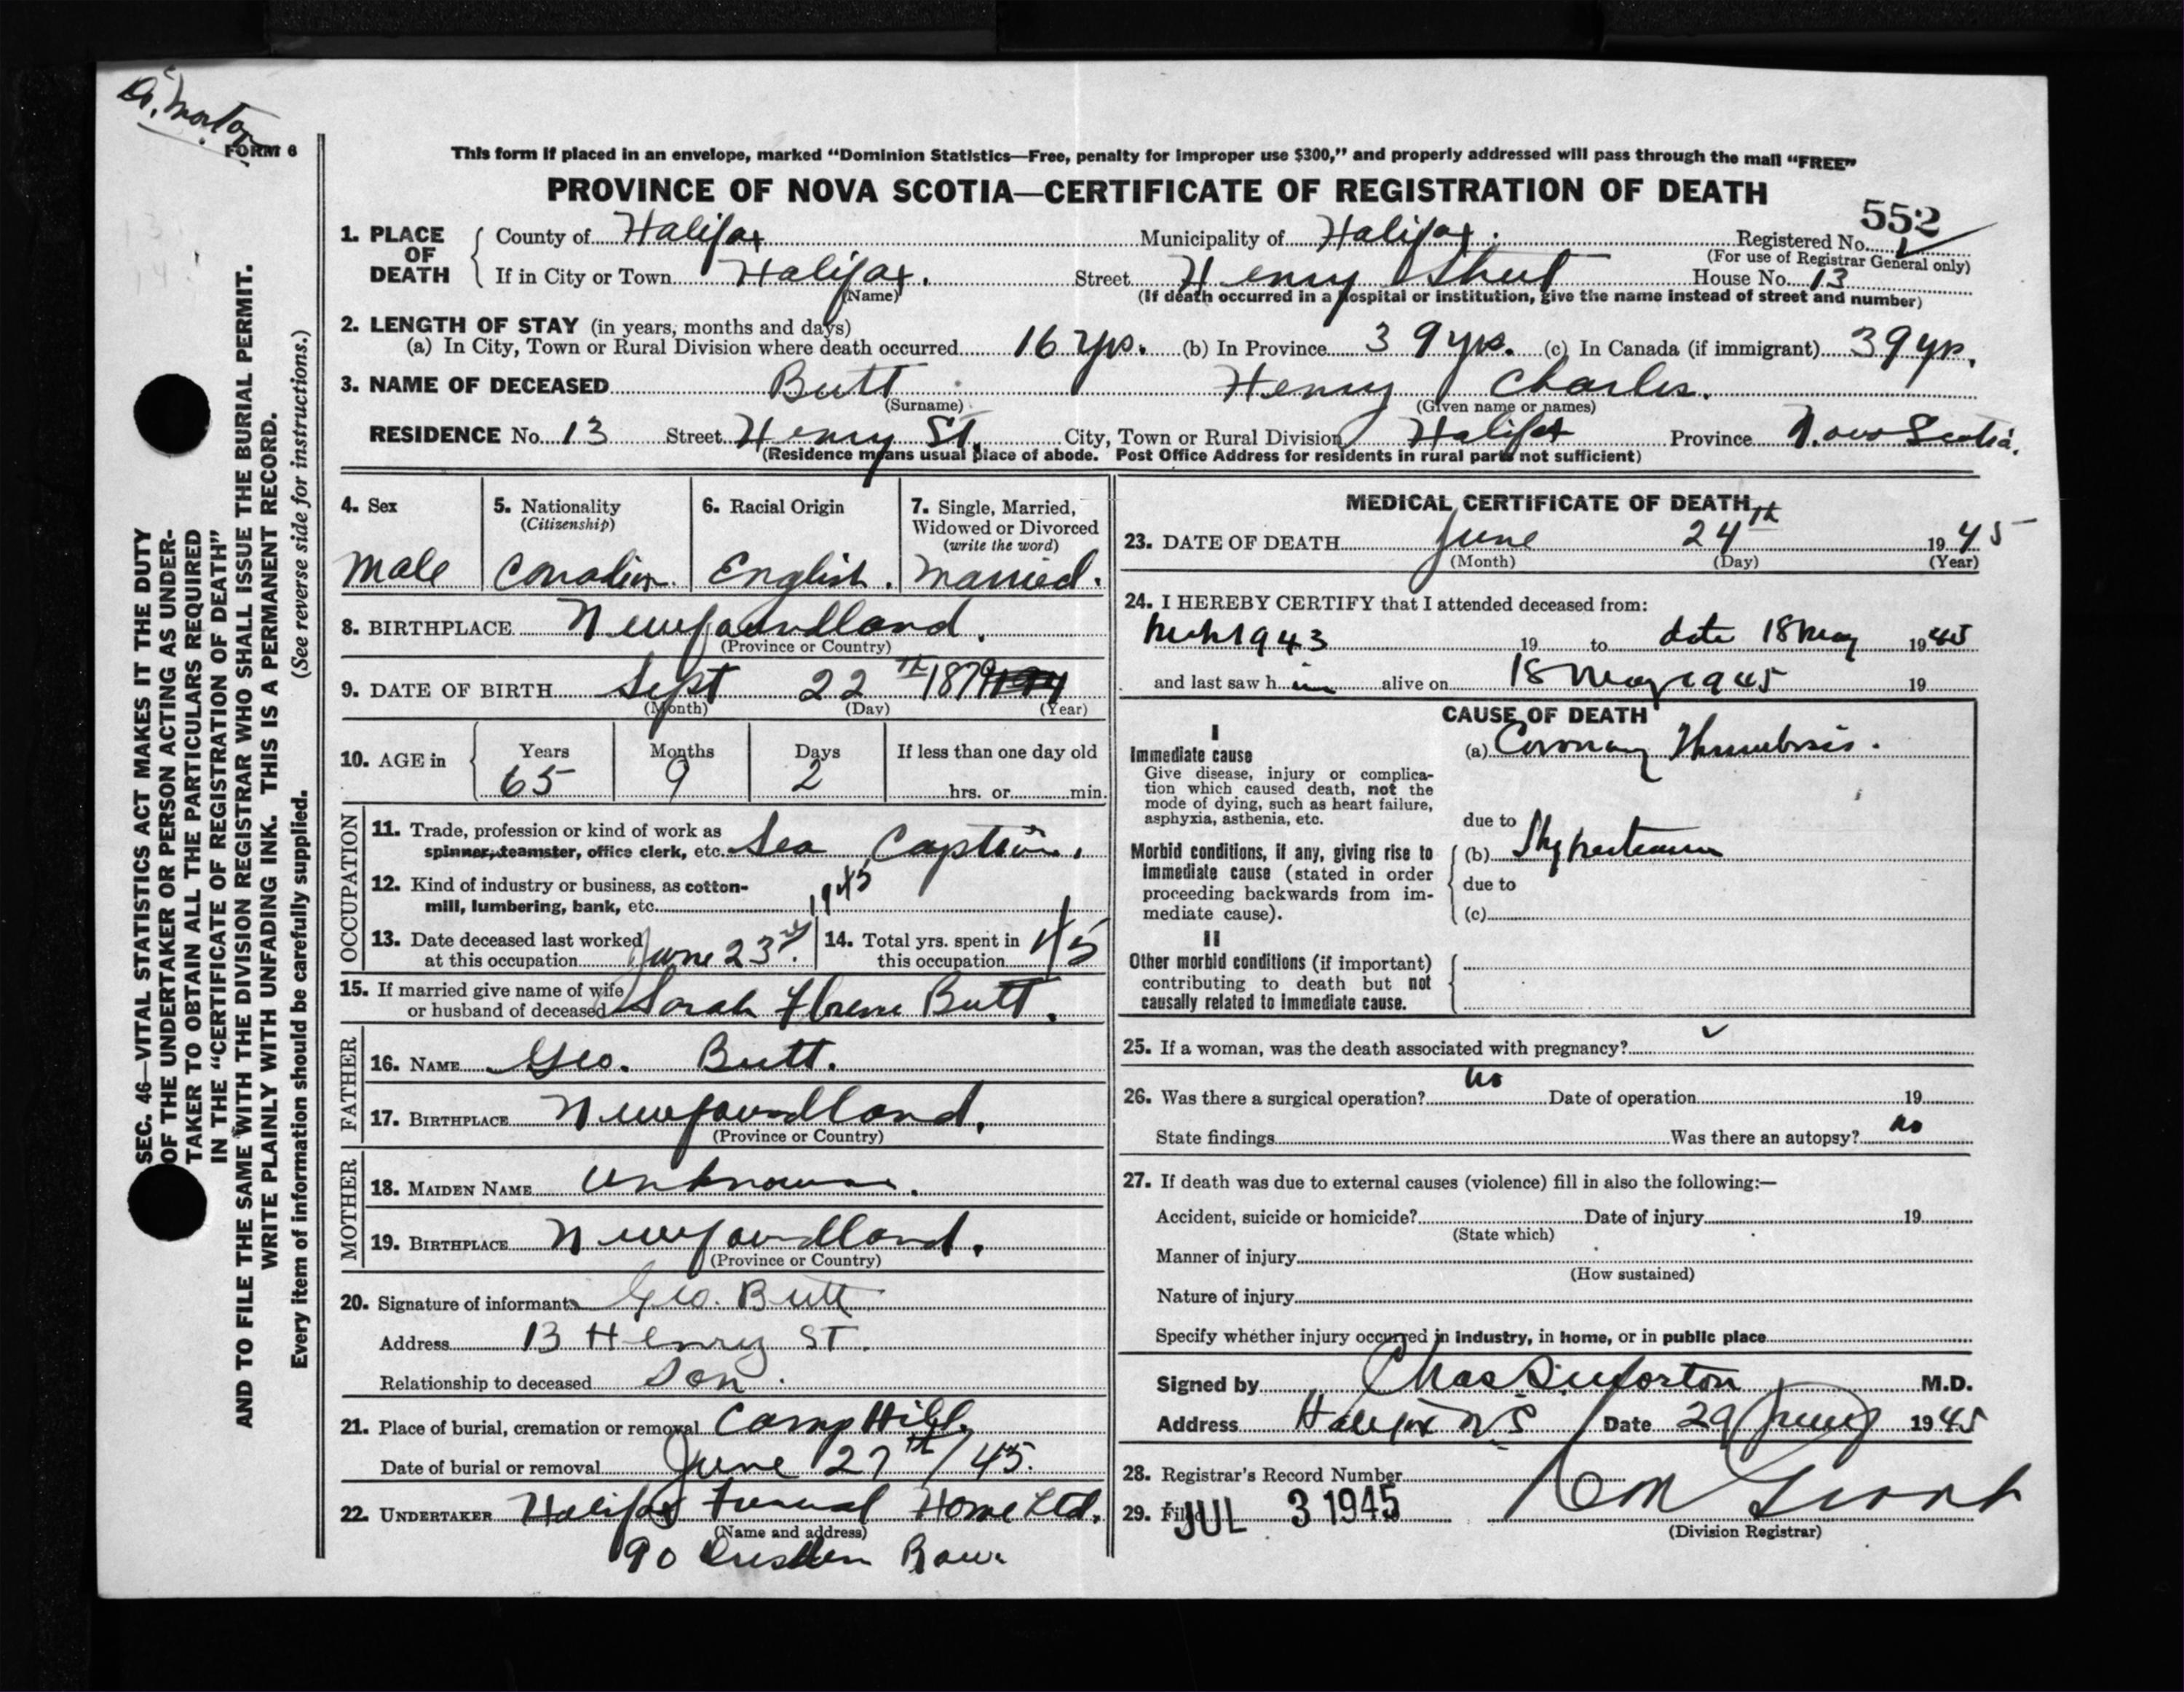 Dr. Morton
FORM 6
This form if placed in an envelope, marked "Dominion Statistics—Free, penalty for improper use $300," and properly addressed will pass through the mail "FREE"
PROVINCE OF NOVA SCOTIA—CERTIFICATE OF REGISTRATION OF DEATH
552
1. PLACE OF DEATH County of Halifax Municipality of Halifax. Registered No.
(For use of Registrar General only)
If in City or Town Halifax. Street Henry Street House No. 13
(Name) (If death occurred in a hospital or institution, give the name instead of street and number)
2. LENGTH OF STAY (in years, months and days)
(a) In City, Town or Rural Division where death occurred 16 yrs. (b) In Province 39 yrs. (c) In Canada (if immigrant) 39 yr.
3. NAME OF DECEASED Butt Henry Charles.
(Surname) (Given name or names)
RESIDENCE No. 13 Street Henry St. City, Town or Rural Division Halifax Province Nova Scotia.
(Residence means usual place of abode. Post Office Address for residents in rural parts not sufficient)
4. Sex 5. Nationality 6. Racial Origin 7. Single, Married,
(Citizenship) Widowed or Divorced
(write the word)
Male Canadian. English. Married.
8. BIRTHPLACE Newfoundland.
(Province or Country)
9. DATE OF BIRTH Sept 22 1879
(Month) (Day) (Year)
10. AGE in Years Months Days If less than one day old
65 9 2 hrs. or min.
OCCUPATION
11. Trade, profession or kind of work as
spinner, teamster, office clerk, etc. Sea Captain.
12. Kind of industry or business, as cotton-
mill, lumbering, bank, etc.
1945
13. Date deceased last worked
at this occupation June 23rd.
14. Total yrs. spent in
this occupation 45
15. If married give name of wife
or husband of deceased Sarah Butt.
FATHER
16. NAME Geo. Butt.
17. BIRTHPLACE Newfoundland.
(Province or Country)
MOTHER
18. MAIDEN NAME Unknown.
19. BIRTHPLACE Newfoundland.
(Province or Country)
20. Signature of informant Geo. Butt
Address 13 Henry ST.
Relationship to deceased Son.
21. Place of burial, cremation or removal Camp Hill.
Date of burial or removal June 27th/45.
22. UNDERTAKER Halifax Funeral Home Ltd.
(Name and address)
90 Row.
MEDICAL CERTIFICATE OF DEATH
23. DATE OF DEATH June 24th 1945
(Month) (Day) (Year)
24. I HEREBY CERTIFY that I attended deceased from:
1943 19 to date 18 May 1945
and last saw h im alive on 18 May 1945 19
CAUSE OF DEATH
I
Immediate cause (a) Coronary Thrombosis.
Give disease, injury or complica-
tion which caused death, not the
mode of dying, such as heart failure,
asphyxia, asthenia, etc.
due to
Morbid conditions, if any, giving rise to
immediate cause (stated in order
proceeding backwards from im-
mediate cause).
(b) Hypertension
due to
(c)
II
Other morbid conditions (if important)
contributing to death but not
causally related to immediate cause.
25. If a woman, was the death associated with pregnancy?
26. Was there a surgical operation? no Date of operation 19
State findings Was there an autopsy? no
27. If death was due to external causes (violence) fill in also the following:—
Accident, suicide or homicide? Date of injury 19
(State which)
Manner of injury
(How sustained)
Nature of injury
Specify whether injury occurred in industry, in home, or in public place
Signed by Chas S. Morton M.D.
Address Halifax N.S Date 29 1945
28. Registrar's Record Number
29. Filed JUL 3 1945
(Division Registrar)
SEC. 46—VITAL STATISTICS ACT MAKES IT THE DUTY
OF THE UNDERTAKER OR PERSON ACTING AS UNDER-
TAKER TO OBTAIN ALL THE PARTICULARS REQUIRED
IN THE "CERTIFICATE OF REGISTRATION OF DEATH"
AND TO FILE THE SAME WITH THE DIVISION REGISTRAR WHO SHALL ISSUE THE BURIAL PERMIT.
WRITE PLAINLY WITH UNFADING INK. THIS IS A PERMANENT RECORD.
Every item of information should be carefully supplied. (See reverse side for instructions.)